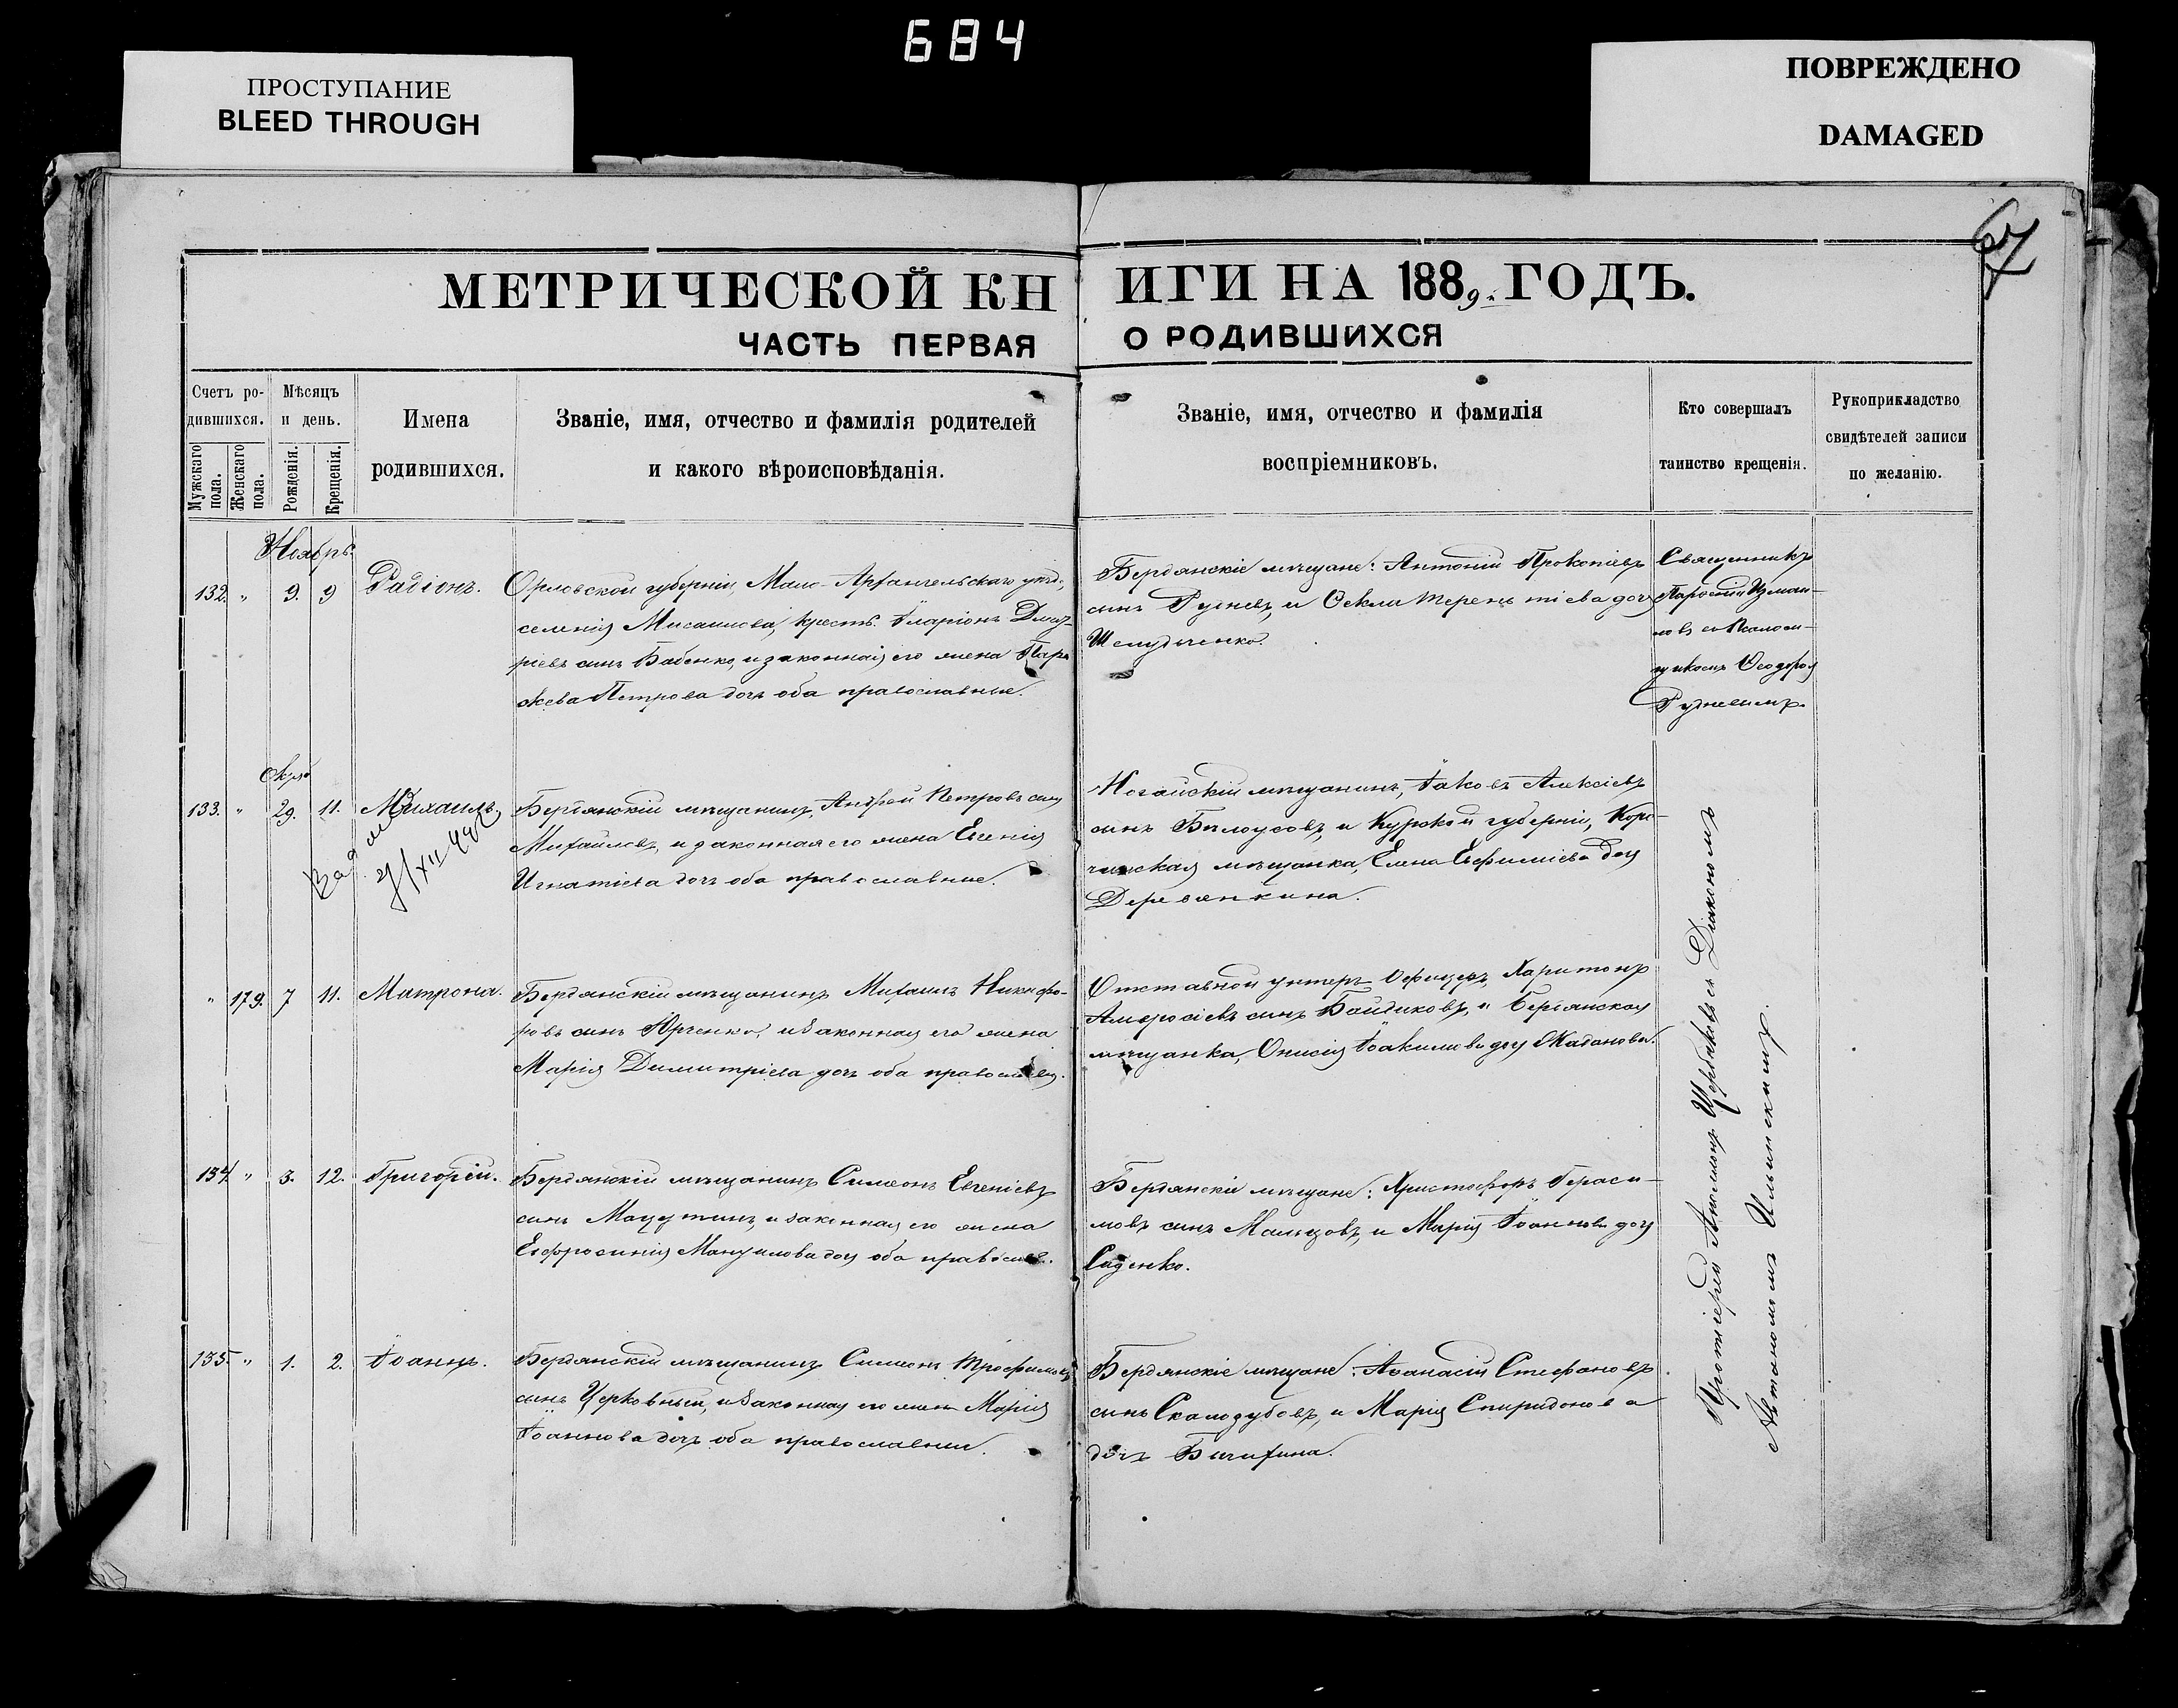 684
ПРОСТУПАНИЕ
BLEED THROUGH
ПОВРЕЖДЕНО
DAMAGED
67
МЕТРИЧЕСКОЙ КНИГИ НА 1889. ГОДЪ.
ЧАСТЬ ПЕРВАЯ О РОДИВШИХСЯ
Счетъ ро-
дившихся.
Мужскаго пола.
Женскаго пола.
Мѣсяцъ
и день.
Рожденія.
Крещенія.
Имена
родившихся.
Званіе, имя, отчество и фамилія родителей
и какого вѣроисповѣданія.
Званіе, имя, отчество и фамилія
воспріемниковъ.
Кто совершалъ
таинство крещенія.
Рукоприкладство
свидѣтелей записи
по желанію.
Ноябрь.
132. " 9. 9 Радіонъ.
Орловской губерніи, Мало-Архангельскаго уѣзд.,
селенія крест. Иларіонъ Дмит-
ріевъ синъ Бабенко, и законная его жена Парас
кева Петрова дочь оба православные.
Бердянскіе мѣщане: Антоній Прокопіевъ
синъ Рудневъ, и Ѳекла Терентіева доч
Шелудченко.
Священникъ
Парѳеній
новъ съ Псалом-
щикомъ Ѳеодоромъ
Рудневимъ.
Октяб
133. " 29. 11. Михаилъ.
Бердянскій мѣщанинъ, Андрей Петровъ синъ
Михайловъ, и законная его жена Евгенія
Игнатіева дочь оба православные.
Ногайскій мѣщанинъ, Іаковъ Алексіевъ
синъ Бѣлоусовъ, и Курской губерніи, Коро-
чинская мѣщанка, Елена Евфиміева доч
Деревянкина.
" 179. 7 11. Матрона.
Бердянскій мѣщанинъ Михаилъ Никифо-
ровъ синъ Юрченко, и законная его жена
Марія Димитріева дочь оба православ.
Отставной унтеръ Офицеръ, Харитонъ
Амвросіевъ синъ Байдиковъ, и Бердянская
мѣщанка, Онисія Іоакимова доч Жаданова.
134 " 3. 12. Григорій.
Бердянскій мѣщанинъ Симеонъ Евгеніевъ
синъ и законная его жена
Евфросинія Мануилова доч оба православ.
Бердянскіе мѣщане: Христофоръ Гераси-
мовъ синъ Мальцовъ, и Марія Іоаннова доч
Саенко.
135. " 1. 2. Іоаннъ.
Бердянскій мѣщанинъ Симеонъ Трофимовъ
синъ Церковный, и законная его жена Марія
Іоаннова дочь оба православные.
Бердянскіе мѣщане: Аѳанасій Стефановъ
синъ Скалозубовъ, и Марія Спиридонова
дочь Бичихина.
Протоіерей Щербаковъ съ Діакономъ
Автономомъ Ильинскимъ.